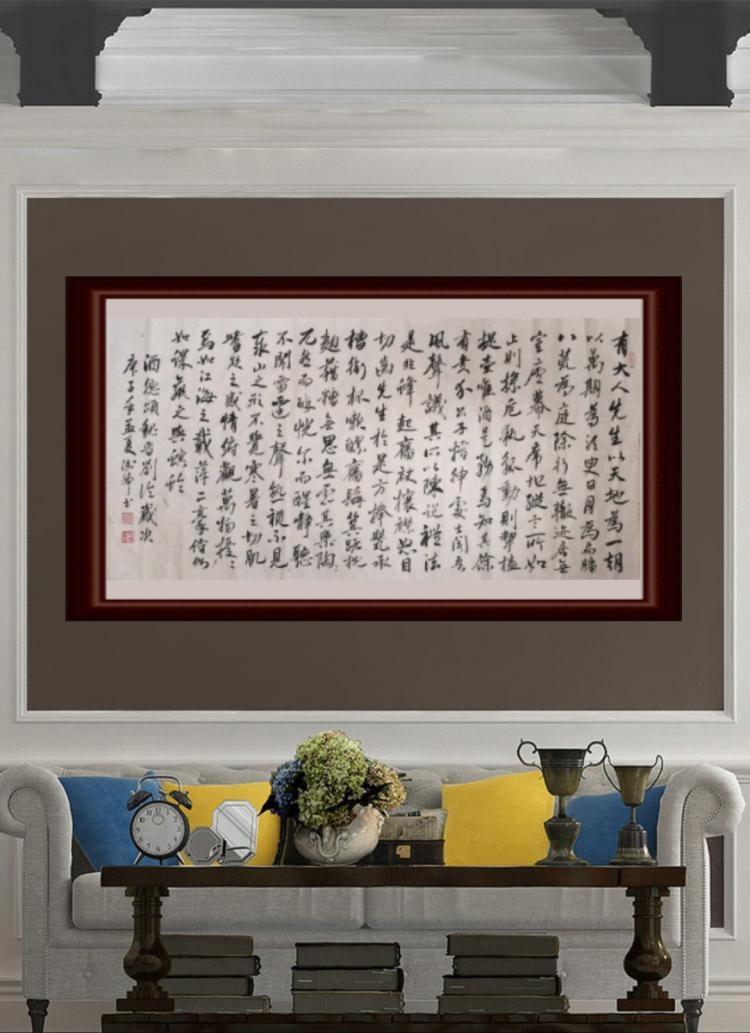 有大人先生以天地為一朝
以萬期為須臾日月為扃牖
八荒為庭除行無轍迹居無
室廬幕天席地縱意所如
止則操卮執觚動則挈榼
提壺唯酒是務焉知其餘
有貴介公子搢紳處士聞吾
風聲議其所以陳說禮法
是非鋒起奮袂攘襟怒目
切齒先生於是方捧甖承
槽銜杯漱醪奮髯箕踞枕
麴藉糟無思無慮其樂陶々
兀然而醉恍尔而醒靜聽
不聞雷霆之聲熟視不見
泰山之形不覺寒暑之切肌
嗜欲之感情俯觀萬物擾々
焉如江海之載萍二豪侍側
如蜾蠃之與螟蛉
酒德頌魏晉劉伶歲次
庚子年孟夏书